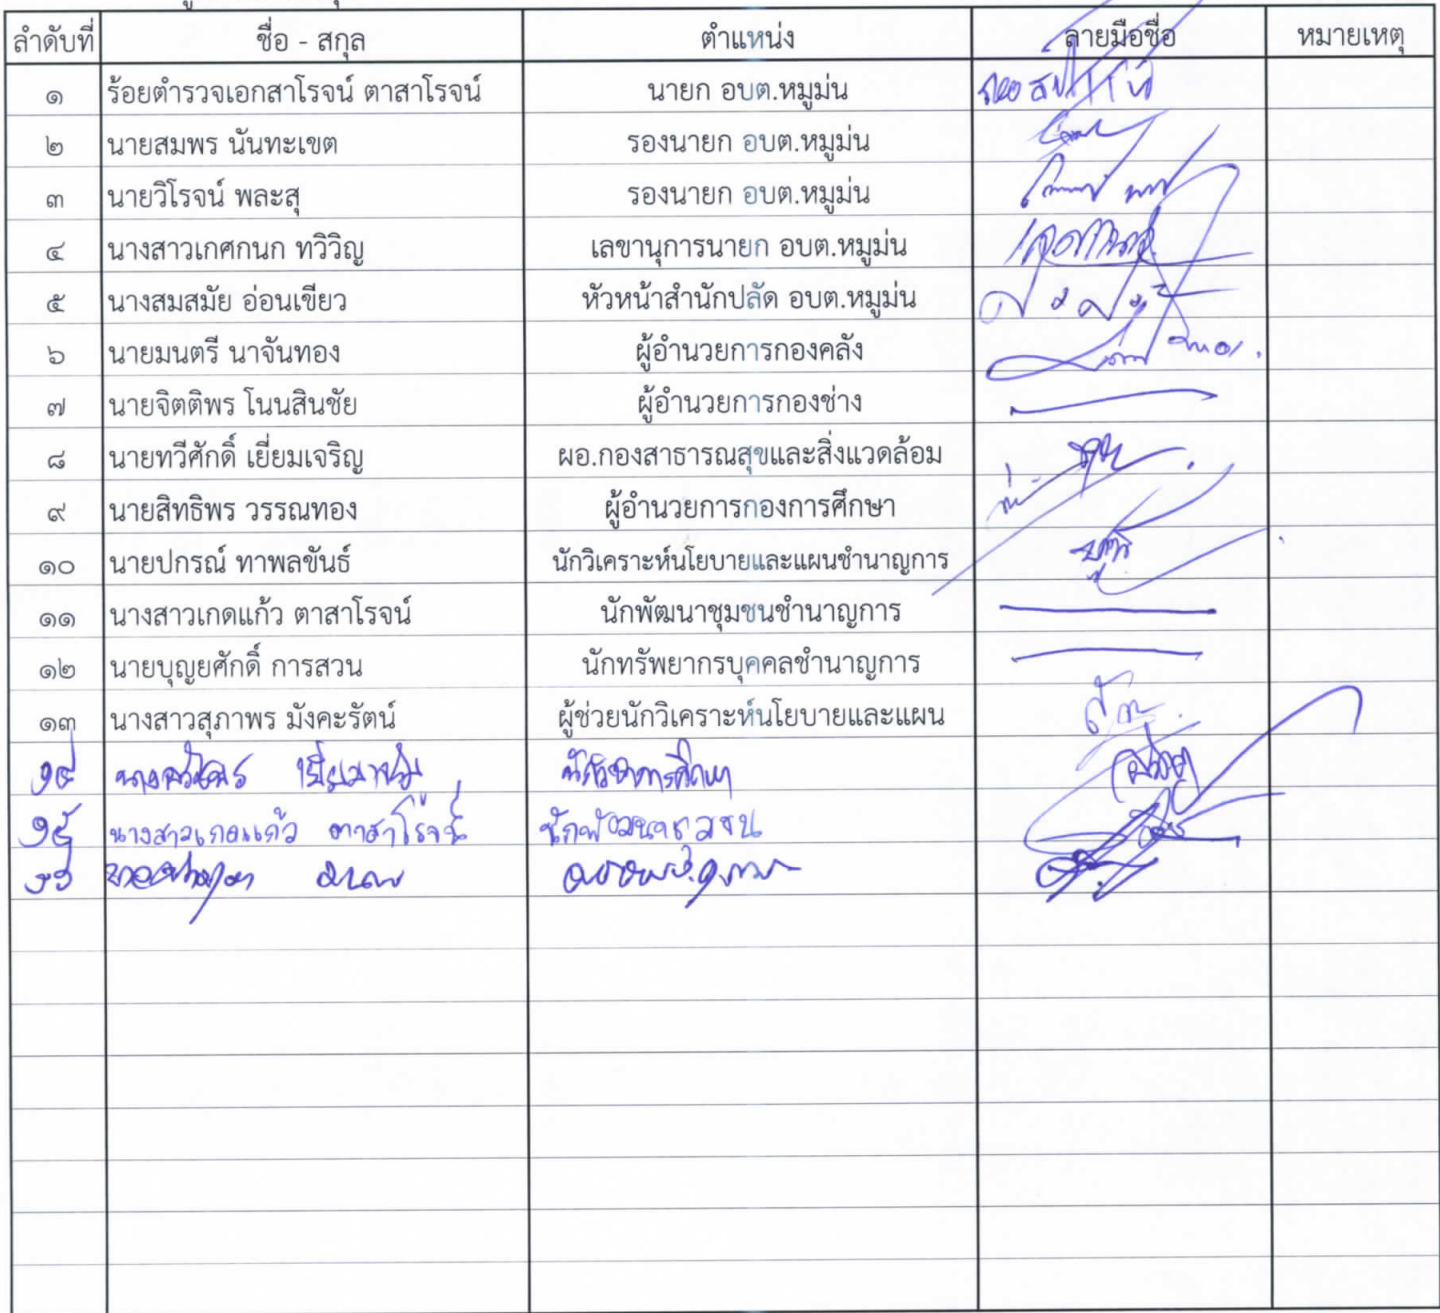 ลำดับที่ ชื่อ - สกุล ตำแหน่ง ลายมือชื่อ หมายเหตุ
๑ ร้อยตำรวจเอกสาโรจน์ ตาสาโรจน์ นายก อบต.หมูม่น
๒ นายสมพร นันทะเขต รองนายก อบต.หมูม่น
๓ นายวิโรจน์ พละสุ รองนายก อบต.หมูม่น
๔ นางสาวเกศกนก ทวิวิญ เลขานุการนายก อบต.หมูม่น
๕ นางสมสมัย อ่อนเขียว หัวหน้าสำนักปลัด อบต.หมูม่น
๖ นายมนตรี นาจันทอง ผู้อำนวยการกองคลัง
๗ นายจิตติพร โนนสินชัย ผู้อำนวยการกองช่าง
๘ นายทวีศักดิ์ เยี่ยมเจริญ ผอ.กองสาธารณสุขและสิ่งแวดล้อม
๙ นายสิทธิพร วรรณทอง ผู้อำนวยการกองการศึกษา
๑๐ นายปกรณ์ ทาพลขันธ์ นักวิเคราะห์นโยบายและแผนชำนาญการ
๑๑ นางสาวเกดแก้ว ตาสาโรจน์ นักพัฒนาชุมชนชำนาญการ
๑๒ นายบุญยศักดิ์ การสวน นักทรัพยากรบุคคลชำนาญการ
๑๓ นางสาวสุภาพร มังคะรัตน์ ผู้ช่วยนักวิเคราะห์นโยบายและแผน
๑๔ นักวิชาการศึกษา
๑๕ นางสาวเกดแก้ว ตาสาโรจน์ นักพัฒนาชุมชน
๑๖